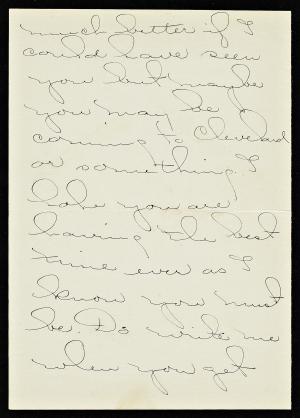 much better if I
could have seen
you but maybe
you may be
coming to Cleveland
or something. I
hope you are
having the best
time ever as I
know you must
be. Do write me
when you get